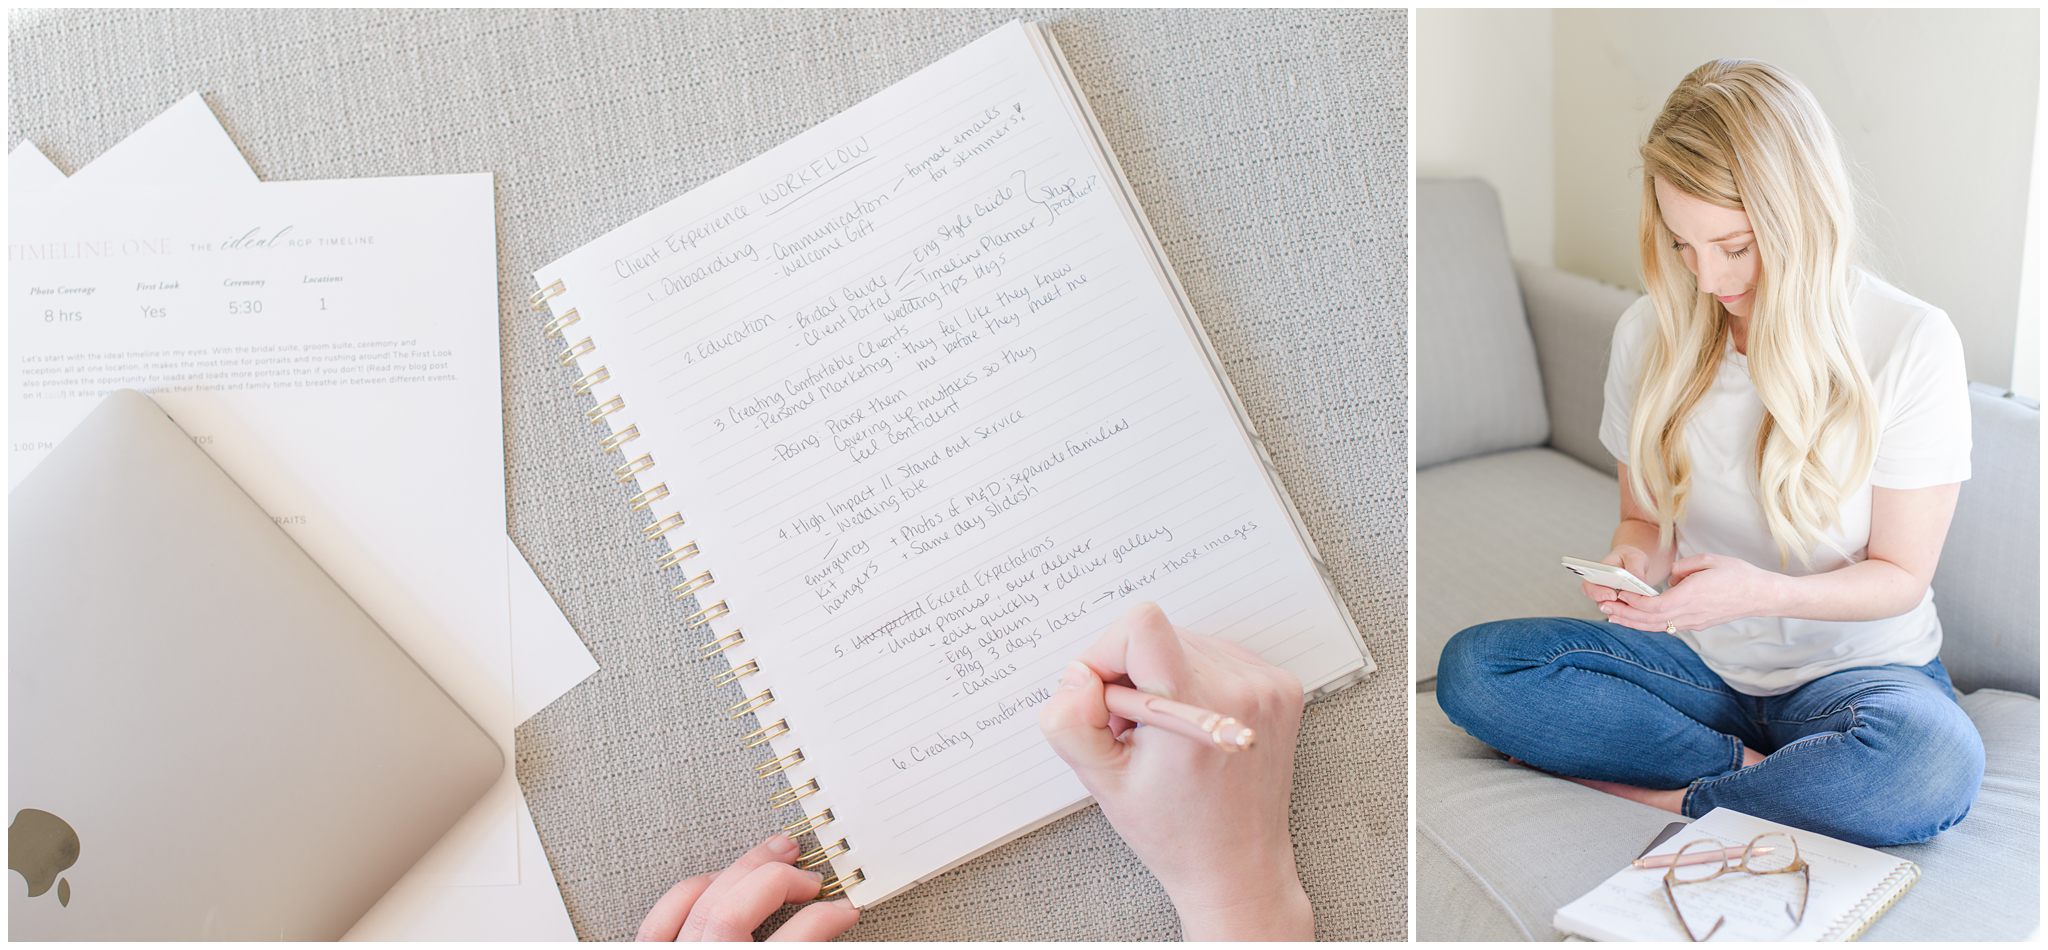 TIMELINE ONE THE ideal RCP TIMELINE
Photo Coverage First Look Ceremony Locations
8 hrs Yes 5:30 1
Let's start with the ideal timeline in my eyes. With the bridal suite, groom suite, ceremony and
reception all at one location, it makes the most time for portraits and no rushing around! The First Look
also provides the opportunity for loads and loads more portraits than if you don't! (Read my blog post
on it It also couples, their friends and family time to breathe in between different events.
1:00 PM
Client Experience WORKFLOW
1. Onboarding - Communication - format emails
for skimmers!
- Welcome Gift
2. Education - Bridal Guide
- Client Portal - Eng Style Guide } Shop
- Timeline Planner product?
wedding tips blogs
3. Creating Comfortable Clients
- Personal Marketing: they feel like they know
me before they meet me
- Posing: Praise them
Covering up mistakes so they
feel confident
4. High Impact || Stand out Service
- Wedding tote
emergency
kit
hangers
+ Photos of M&D; separate families
+ Same day slidesh
5. Unexpected Exceed Expectations
- Under promise, over deliver
- edit quickly + deliver gallery
- Eng album
- Blog 3 days later → deliver those images
- Canvas
6. Creating comfortable